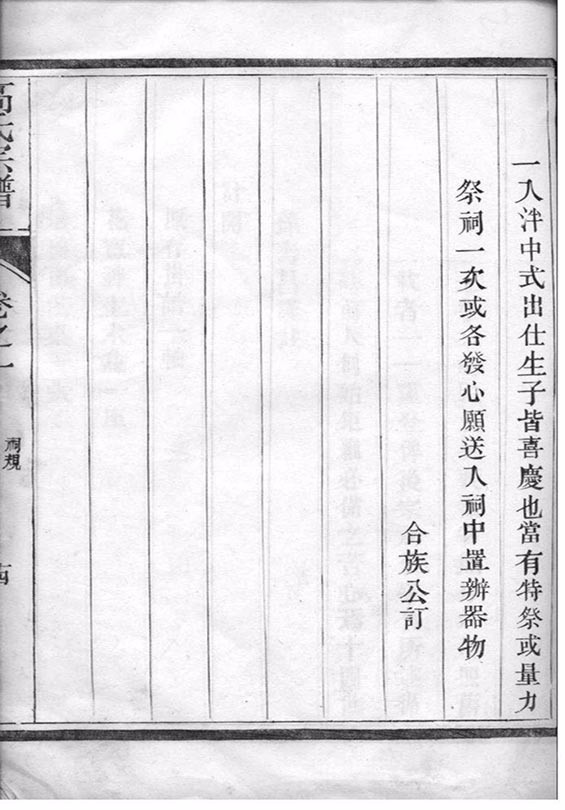 一入泮中式出仕生子皆喜慶也當有特祭或量力
祭祠一次或各發心願送入祠中置辦器物
合族公訂
高氏宗譜
卷之一
祠規
四